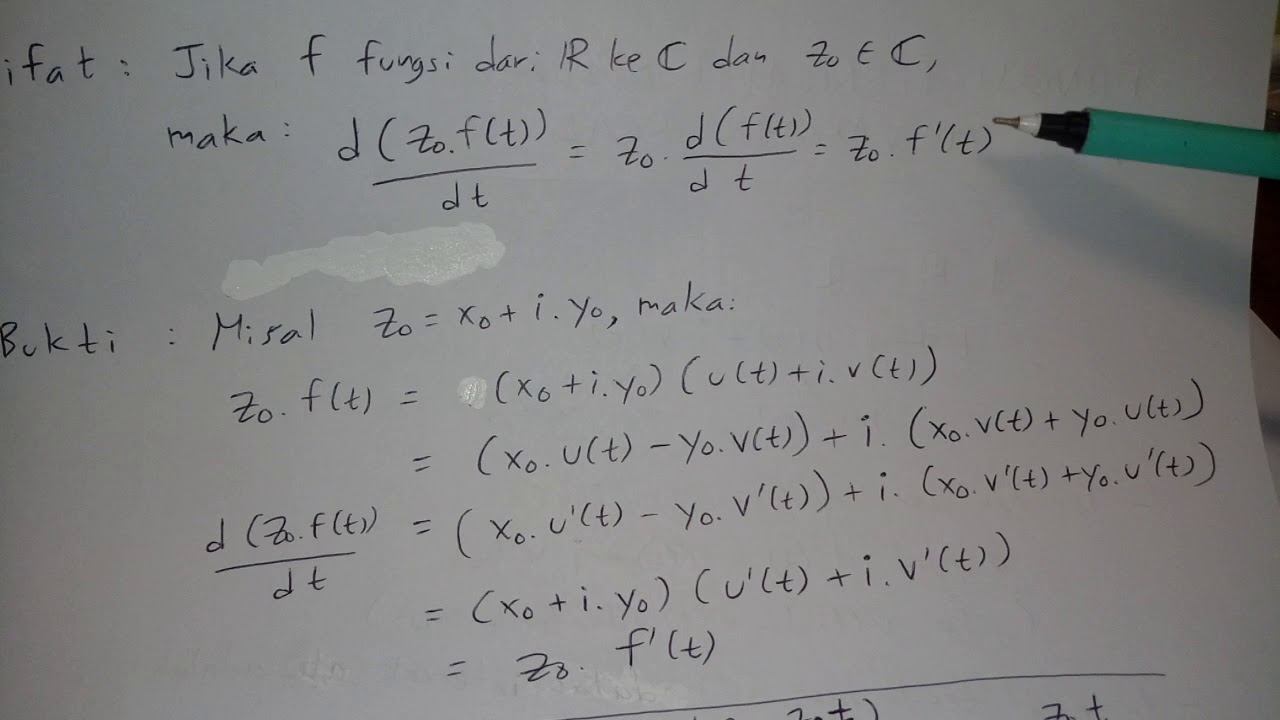 ifat : Jika f fungsi dari ℝ ke ℂ dan z₀ ∈ ℂ,
maka : d(z₀.f(t))/dt = z₀. d(f(t))/dt = z₀. f'(t)
Bukti : Misal z₀ = x₀ + i.y₀, maka:
z₀. f(t) = (x₀ + i.y₀) (u(t) + i.v(t))
= (x₀.u(t) - y₀.v(t)) + i. (x₀.v(t) + y₀.u(t))
d(z₀.f(t))/dt = (x₀.u'(t) - y₀.v'(t)) + i. (x₀.v'(t) + y₀.u'(t))
= (x₀ + i.y₀) (u'(t) + i.v'(t))
= z₀. f'(t)
z₀t) z₀t